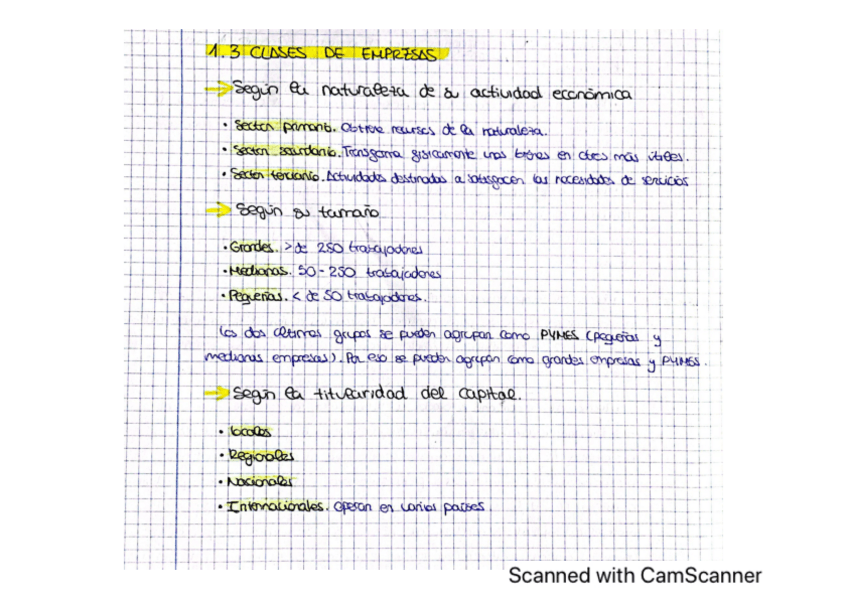 1.3 CLASES DE EMPRESAS
→ Según la naturaleza de su actividad económica
• Sector primario. Obtiene recursos de la naturaleza.
• Sector secundario. Transforma físicamente unos bienes en otros más útiles.
• Sector terciario. Actividades destinadas a satisfacer las necesidades de servicios
→ Según su tamaño
• Grandes. > de 250 trabajadores
• Medianas. 50-250 trabajadores
• Pequeñas. < de 50 trabajadores.
Los dos últimos grupos se pueden agrupar como PYMES (pequeñas y
medianas empresas). Por eso se pueden agrupar como grandes empresas y PYMES.
→ Según la titularidad del capital.
• Locales
• Regionales
• Nacionales
• Internacionales. Operan en varios países.
Scanned with CamScanner